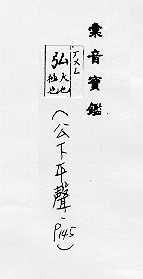 彙音寶鑑
ㄏㄨㄥ
弘 大也 她也
(公下平聲-P145)